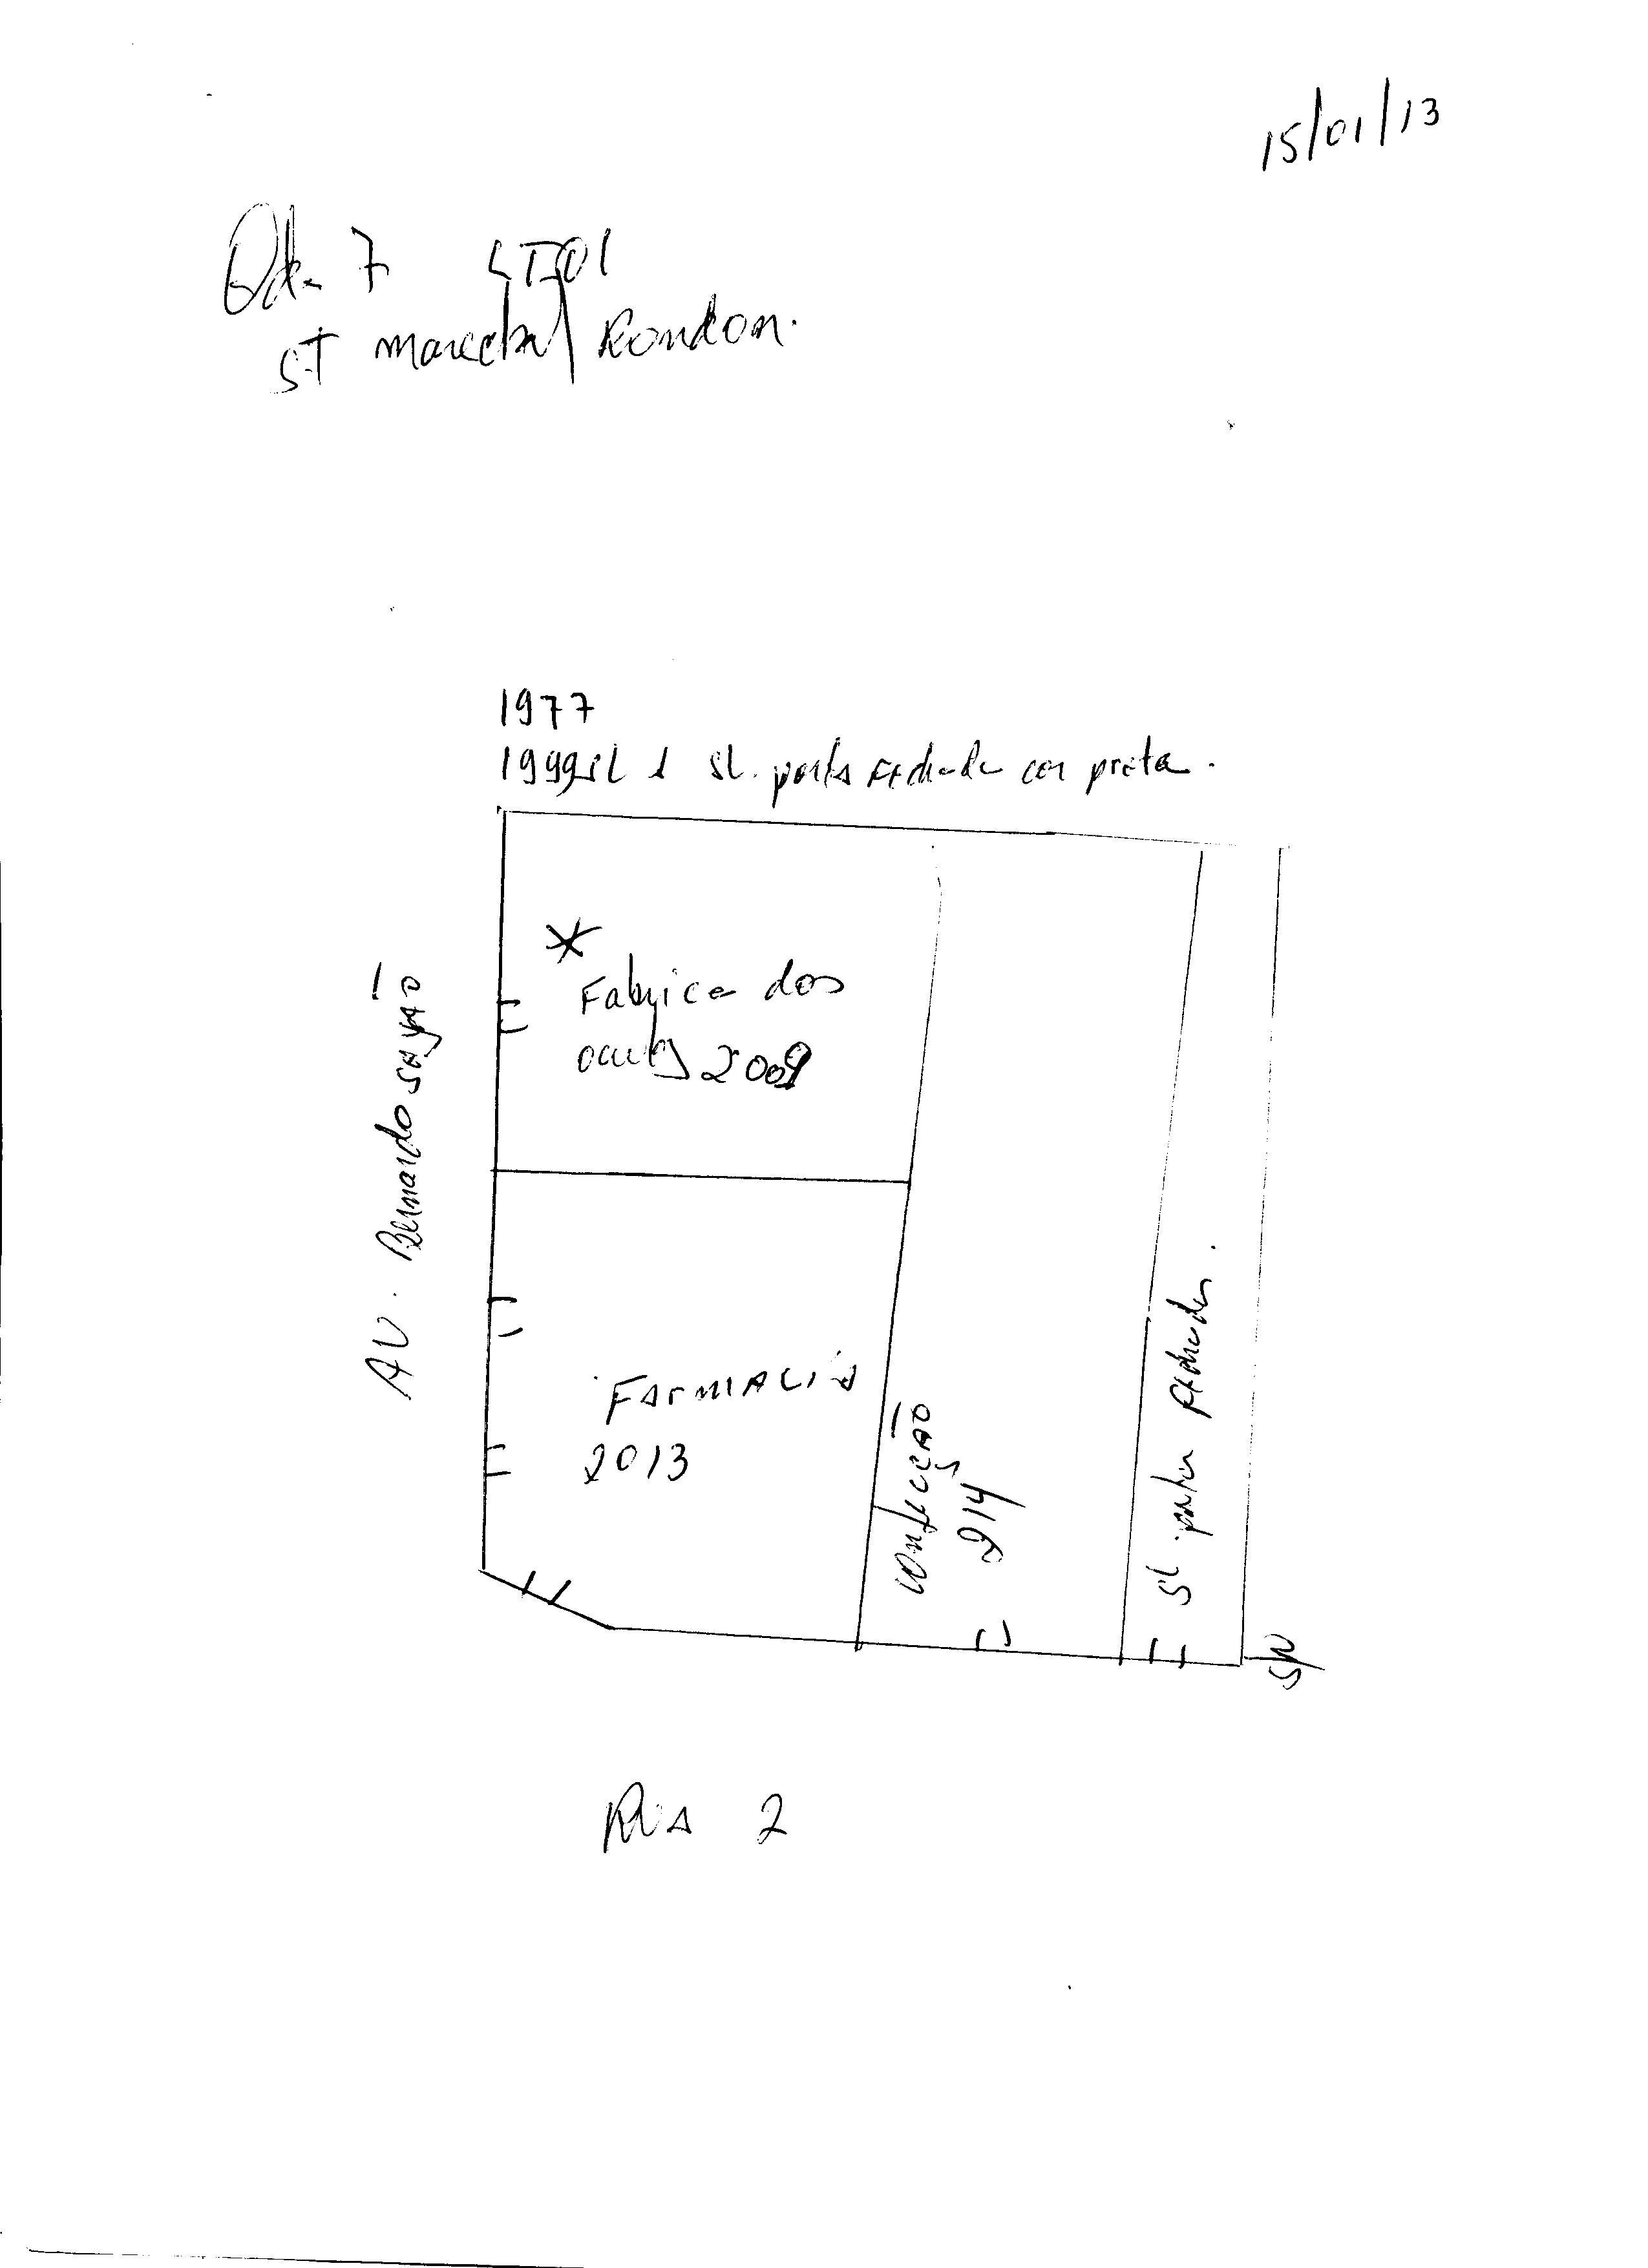 15/01/13
Qd. 7 LT 01
ST marechal Rondon.
1977
1999 SL 1 SL. porta fechada cor preta.
* Fabrica dos
oculos 2009
AV. Bernardo SAYÃO
FARMACIA
2013
CONFECÇÃO
214
SL porta fechada.
SN
RUA 2